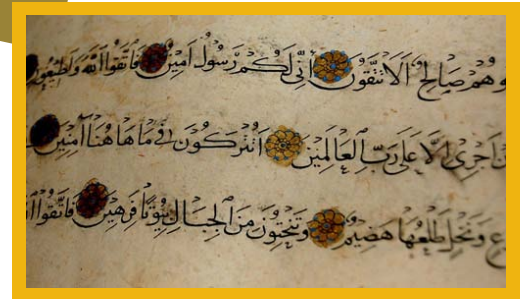 وهم صالح ألا تتقون إني لكم رسول أمين فاتقوا الله وأطيعون
ن أجري إلا على رب العالمين أتتركون في ما هاهنا آمنين
ع ونخل طلعها هضيم وتنحتون من الجبال بيوتا فرهين فاتقوا ا